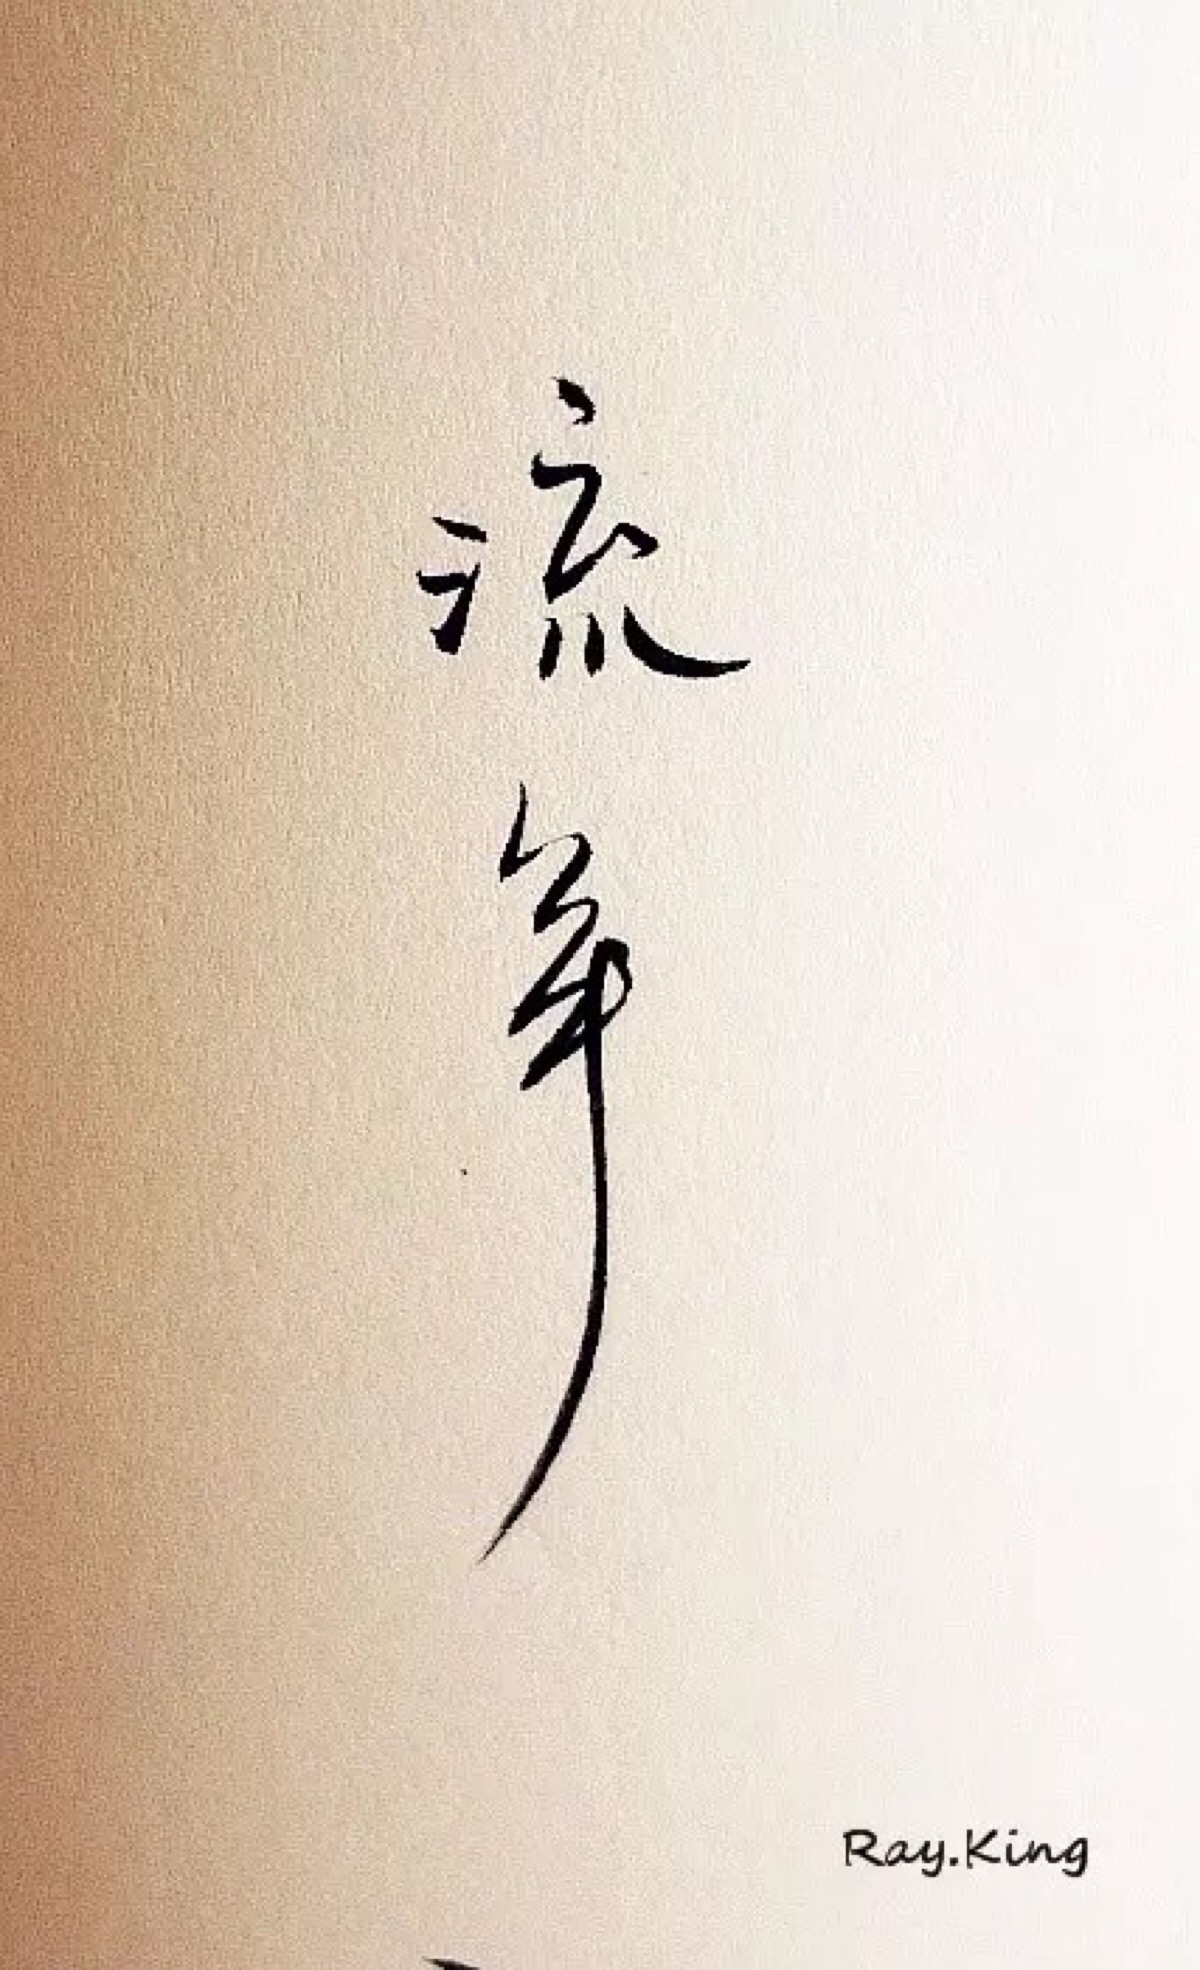 流年
Ray.King